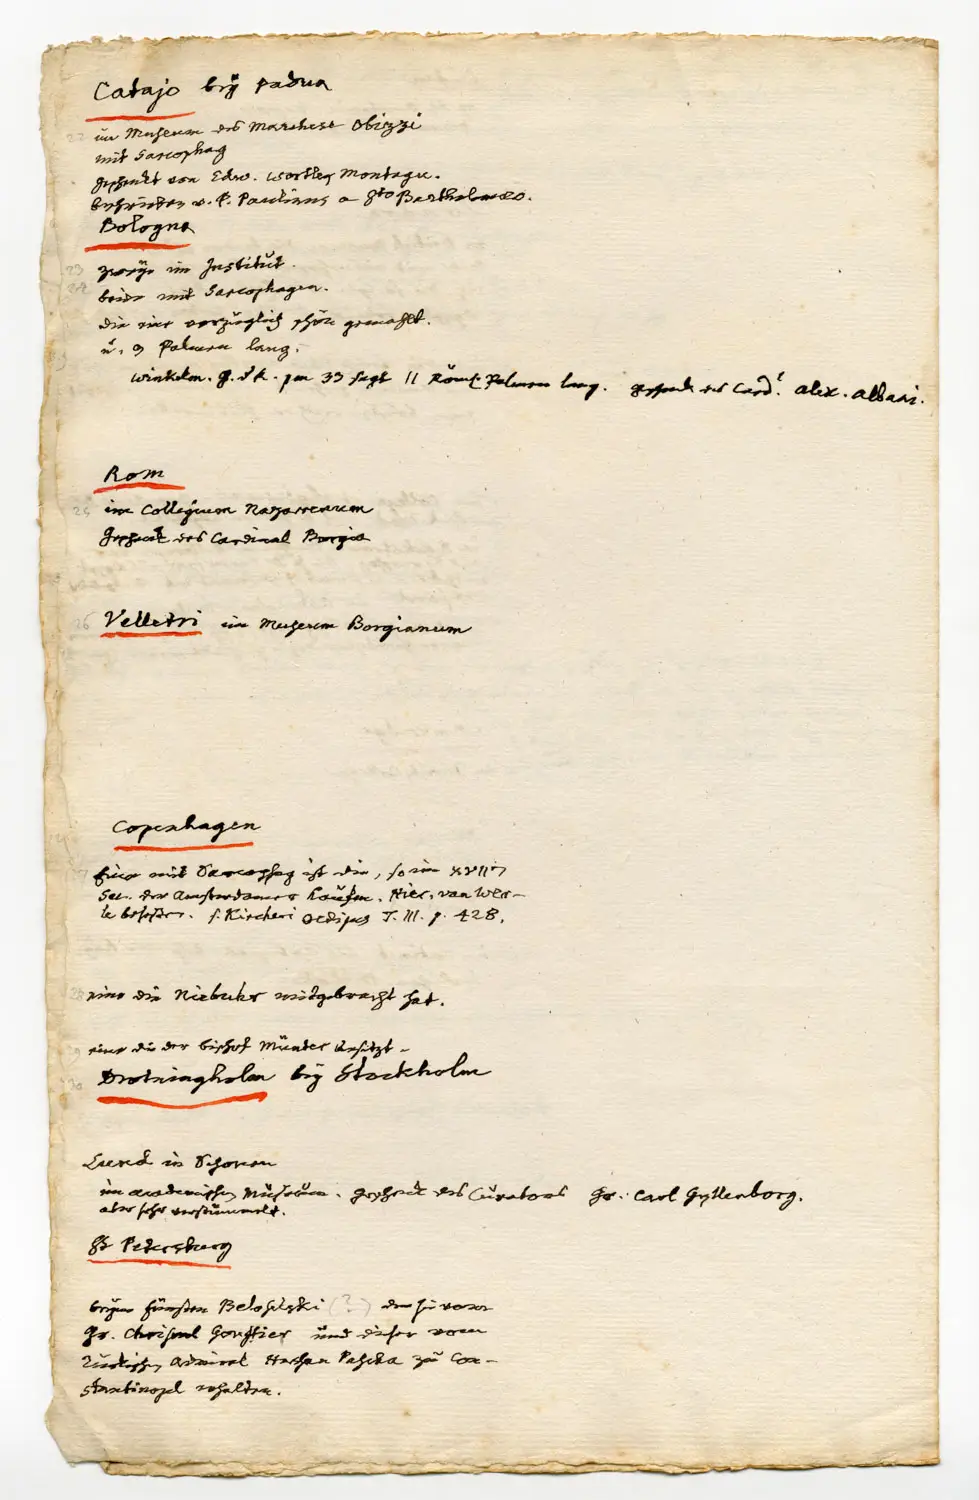 Catajo bey Padua
22 im Museum des Marchese Obizzi
mit Sarcophag
geschenkt von Edw. Wortley Montagu.
beschrieben v. P. Paulinus a Sto Bartholomaeo.
Bologna
23 zwey im Institut.
24 beide mit Sarcophagen.
die eine vorzüglich schön gemahlt.
u. 9 Palmen lang.
Winkelm. G. d K. p. 33 sagt 11 Röm. Palmen lang. geschenk des Card.l Alex. Albani.
Rom
25 im Collegium Nazarenum
Geschenk des Cardinal Borgia
26 Velletri im Museum Borgianum
Copenhagen
27 Eine mit Sarcophag ist die, so im XVIIn
Sec. der Amsterdamer Kaufm. Hier. van Wer-
le besessen. s. Kircheri Oedipus T. III. p. 428.
28 eine die Niebuhr mitgebracht hat.
29 eine die der Bischof Münter besitzt.
30 Drotningholm bey Stockholm
Lund in Schonen
im academischen Museum. geschenk des Curators Gr. Carl Gyllenborg.
aber sehr verstümmelt.
St Petersburg
beym Fürsten Beloselski (?) den sie vom
Gr. Choiseul Gouffier und dieser vom
Türkischen Admiral Hassan Pascha zu Con-
stantinopel erhalten.